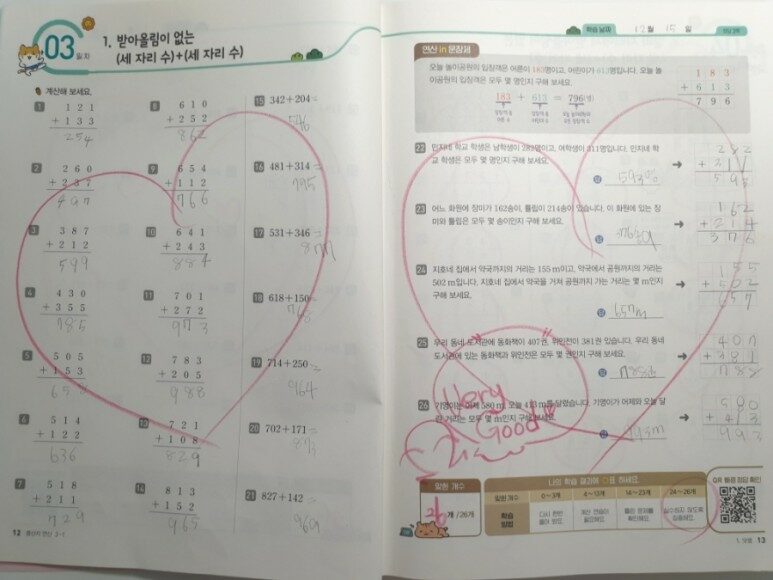 03 일차
1. 받아올림이 없는
(세 자리 수)+(세 자리 수)
계산해 보세요.
1
121
+ 133
254
2
260
+ 237
497
3
387
+ 212
599
4
430
+ 355
785
5
505
+ 153
658
6
514
+ 122
636
7
518
+ 211
729
8
610
+ 252
862
9
654
+ 112
766
10
641
+ 243
884
11
701
+ 272
973
12
783
+ 205
988
13
721
+ 108
829
14
813
+ 152
965
15 342+204=
546
16 481+314=
795
17 531+346=
877
18 618+150=
768
19 714+250=
964
20 702+171=
873
21 827+142=
969
12
학습 날짜 12월 15일
연산 in 문장제
오늘 놀이공원의 입장객은 어른이 183명이고, 어린이가 613명입니다. 오늘 놀
이공원의 입장객은 모두 몇 명인지 구해 보세요.
183 + 613 = 796(명)
183
+ 613
796
22 민지네 학교 학생은 남학생이 282명이고, 여학생이 311명입니다. 민지네 학
교 학생은 모두 몇 명인지 구해 보세요.
답 593명
282
+ 311
593
23 어느 화원에 장미가 162송이, 튤립이 214송이 있습니다. 이 화원에 있는 장
미와 튤립은 모두 몇 송이인지 구해 보세요.
162
+ 214
376
24 지호네 집에서 약국까지의 거리는 155 m이고, 약국에서 공원까지의 거리는
502 m입니다. 지호네 집에서 약국을 거쳐 공원까지 가는 거리는 몇 m인지
구해 보세요.
답 657m
155
+ 502
657
25 우리 동네 도서관에 동화책이 407권, 위인전이 381권 있습니다. 우리 동네
도서관에 있는 동화책과 위인전은 모두 몇 권인지 구해 보세요.
답 788권
407
+ 381
788
26 기영이는 어제 580 m, 오늘 413 m를 달렸습니다. 기영이가 어제와 오늘 달
린 거리는 모두 몇 m인지 구해 보세요.
993m
580
+ 413
993
Very
Good
맞힌 개수
26개 /26개
나의 학습 결과에 ○표 하세요.
맞힌 개수 0~3개 4~13개 14~23개 24~26개
학습 방법
다시 한번 풀어 봐요.
계산 연습이 필요해요.
틀린 문제를 확인해요.
실수하지 않도록 집중해요.
QR 빠른 정답 확인
13